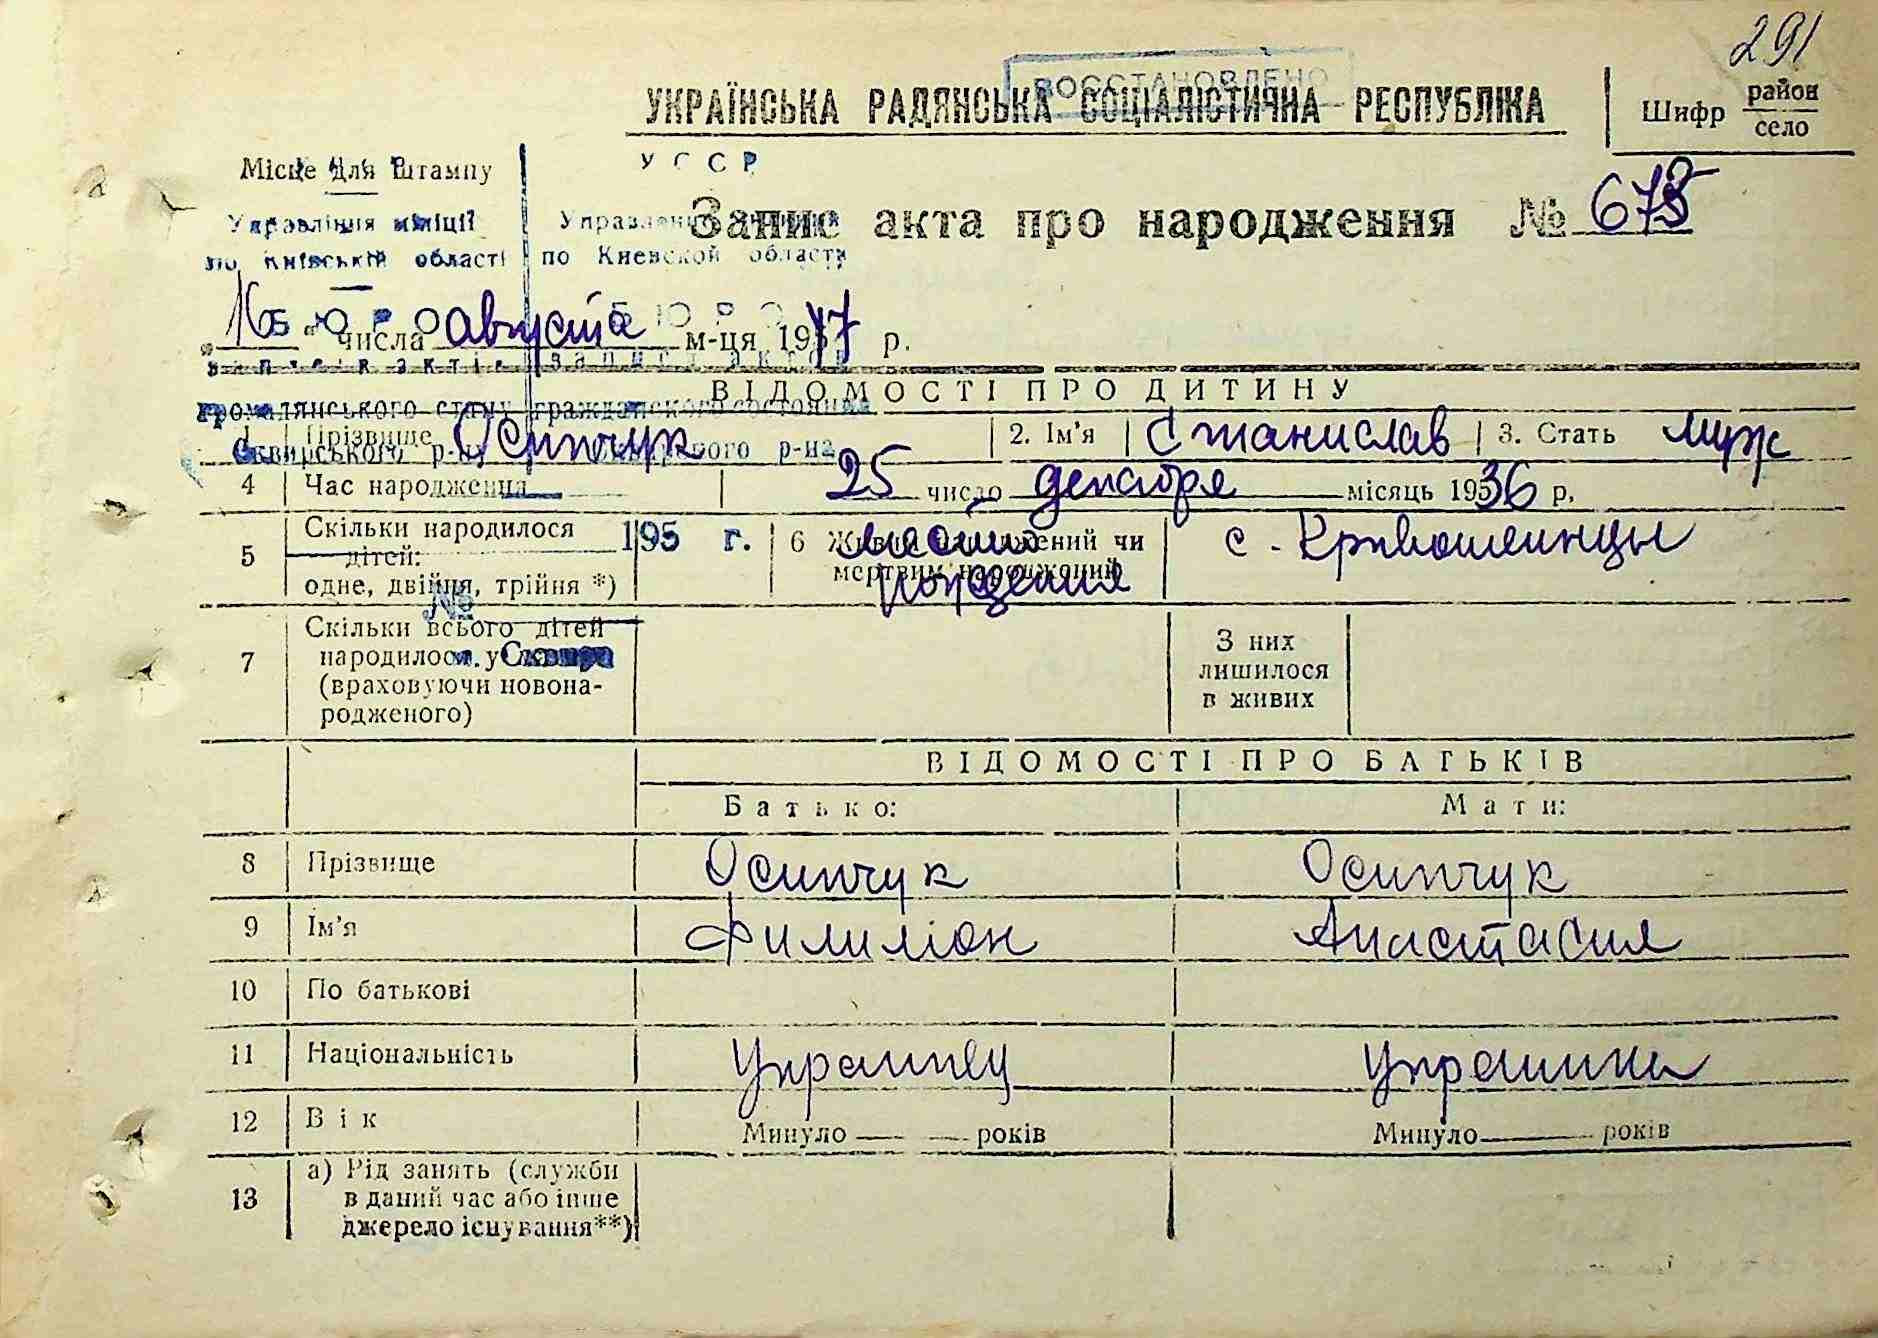 291
ВОССТАНОВЛЕНО
УКРАЇНСЬКА РАДЯНСЬКА СОЦІАЛІСТИЧНА РЕСПУБЛІКА
Шифр район
село
Місце для штампу
УССР
Запис акта про народження № 678
Управління міліції
Управление милиции
по Київській області
по Киевской области
БЮРО
БЮРО
16 числа августа м-ця 1957 р.
записів актів
записи актов
ВІДОМОСТІ ПРО ДИТИНУ
громадянського стану
гражданского состояния
1 Прізвище Осипчук 2. Ім'я Станислав 3. Стать муж
Сквирського р-ну
Сквирского р-на
4 Час народження 25 число декабря місяць 1936 р.
5 Скільки народилося
дітей:
одне, двійня, трійня *)
195 г.
6 Живим народжений чи
мертвим народжений
место
рождения
с. Кривошеинцы
№
7 Скільки всього дітей
народилося у матері
(враховуючи новона-
родженого)
м. Сквира
З них
лишилося
в живих
ВІДОМОСТІ ПРО БАТЬКІВ
Батько: Мати:
8 Прізвище Осипчук Осипчук
9 Ім'я Филимон Анастасия
10 По батькові
11 Національність Украинец Украинка
12 Вік Минуло років Минуло років
13 а) Рід занять (служби
в даний час або інше
джерело існування**)